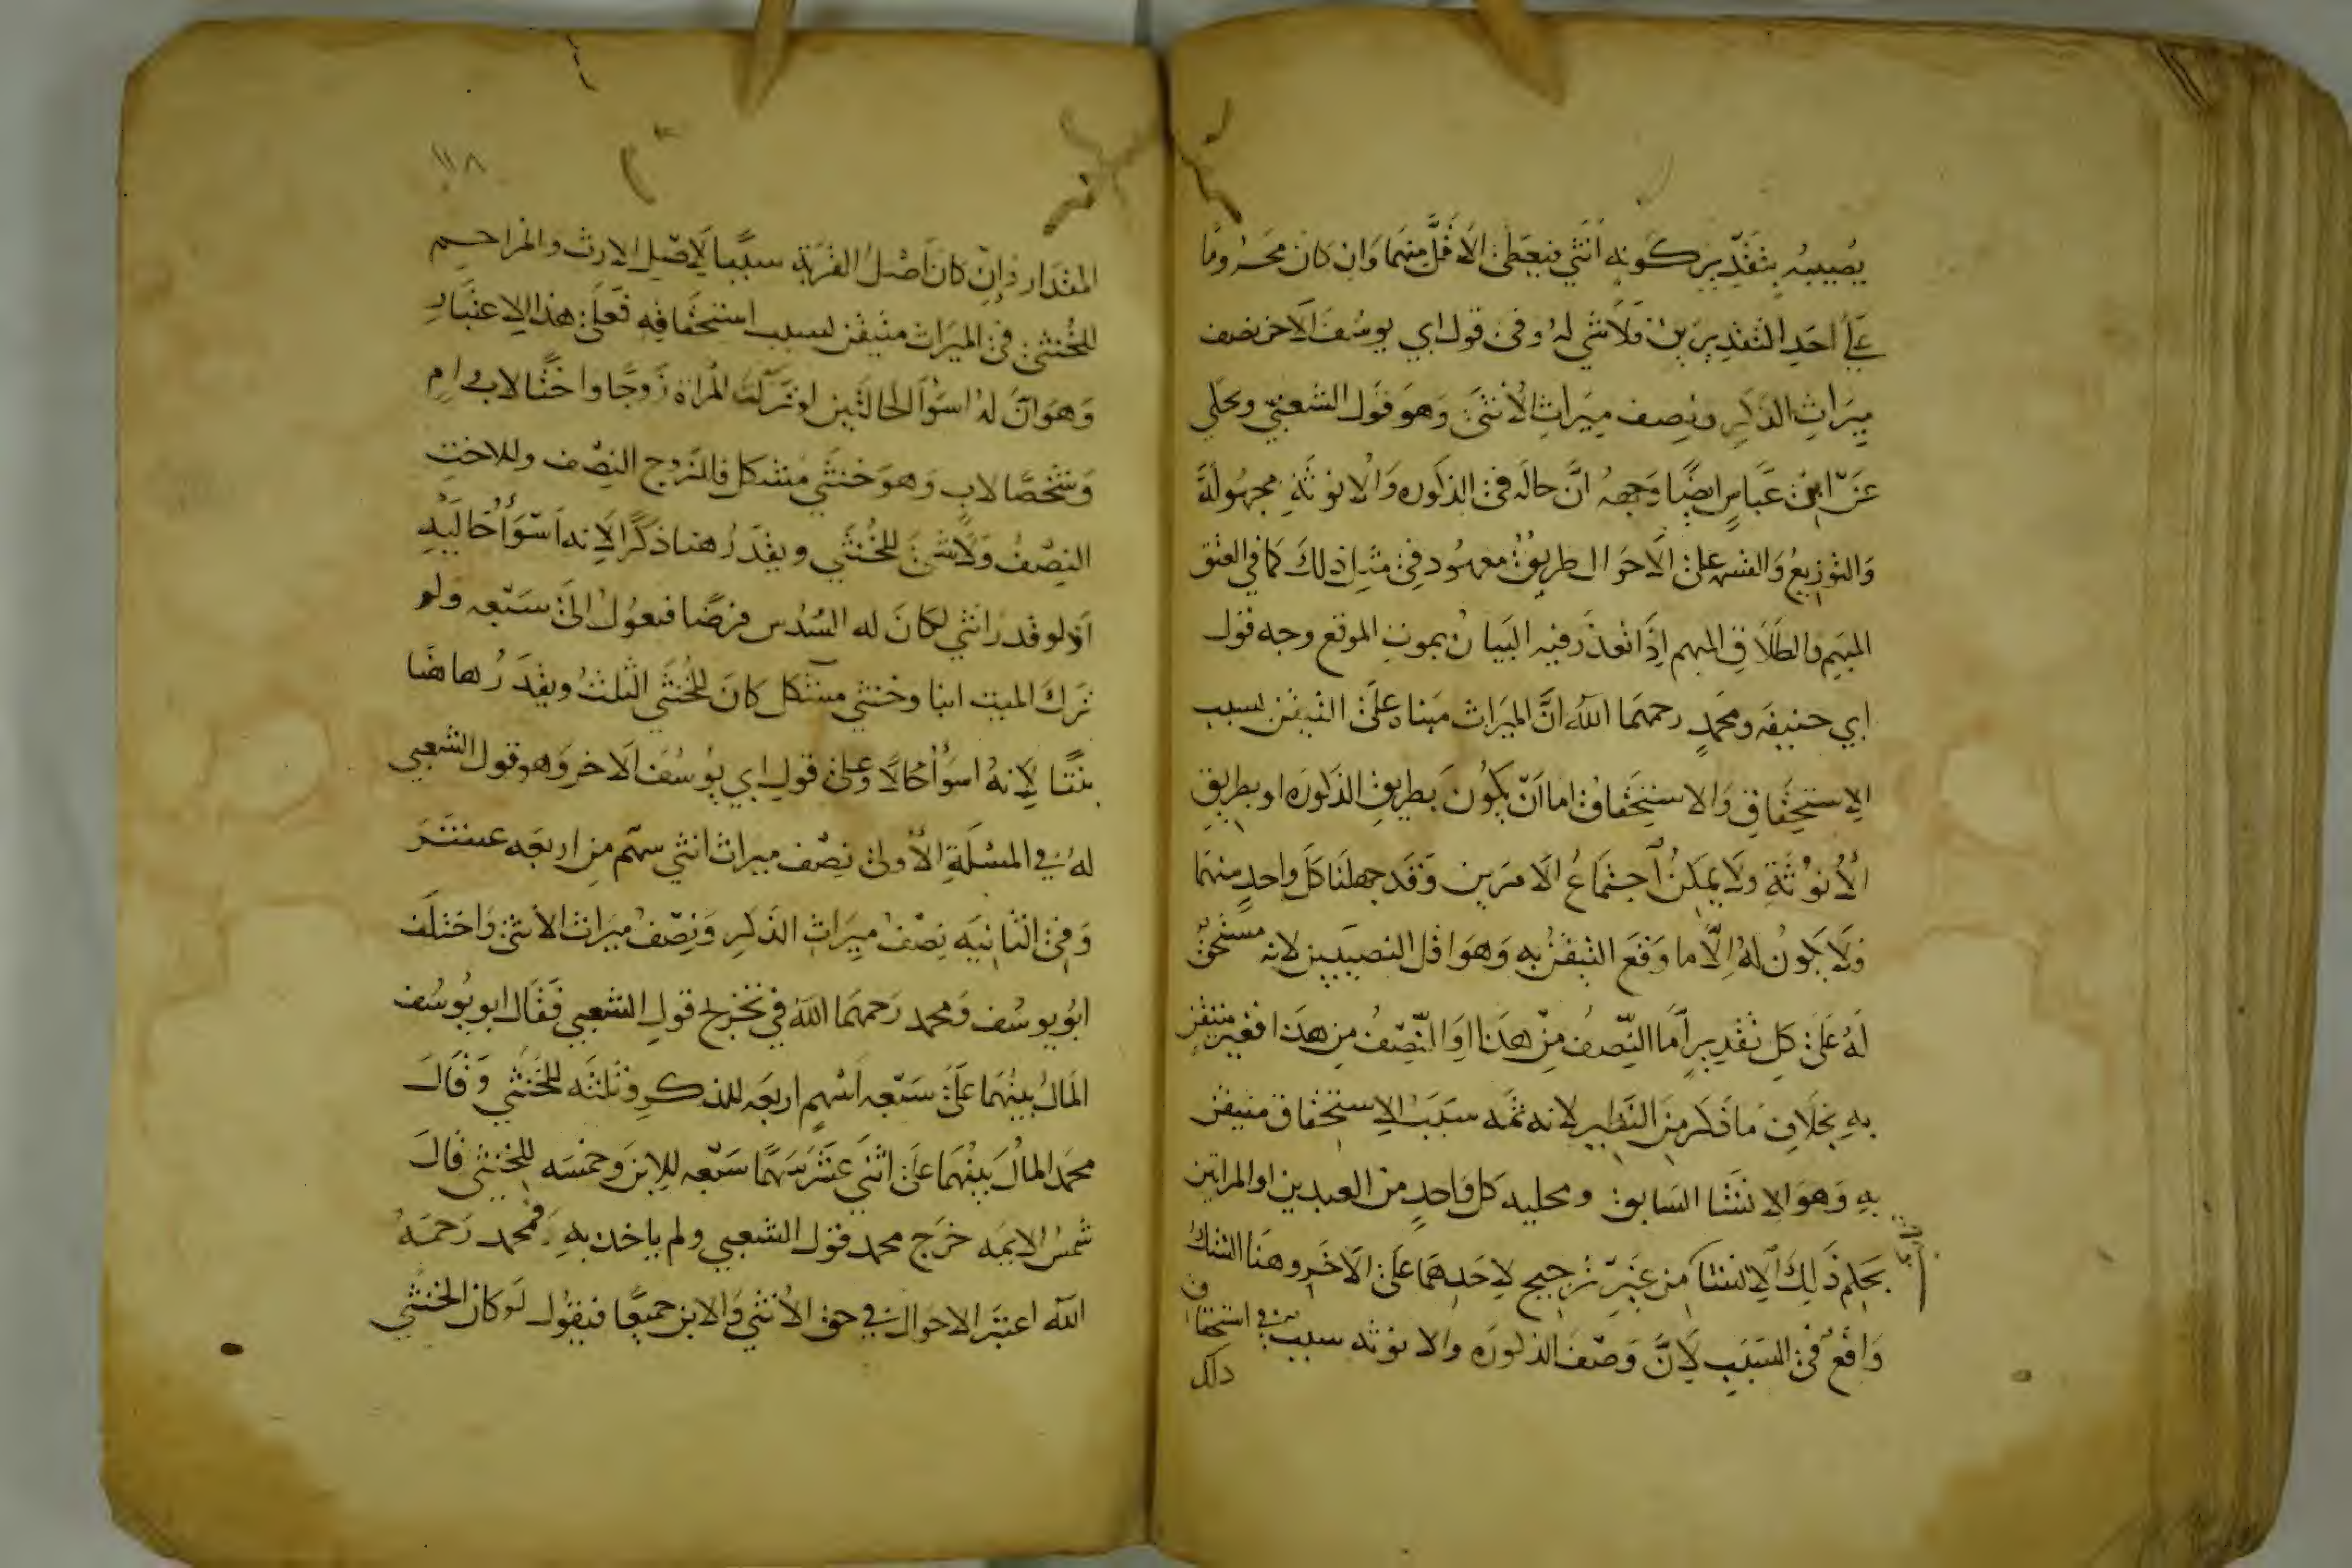 يصيبه بتقدير كونه انثى فيعطى الاقل منهما وان كان محروما
على احد التقديرين فلا شي له وفي قول ابي يوسف الاخر نصف
ميراث الذكر ونصف ميراث الانثى وهو قول الشعبي ويحكي
عن ابن عباس ايضا وجهه ان حاله في الذكوره والانوثة مجهولة
والتوزيع على الاحوال طريق معهود في مثل ذلك كما في العتق
المبهم والطلاق المبهم اذا تعذر فيه البيان بموت الموقع وجه قول
ابي حنيفه ومحمد رحمهما الله ان الميراث مبناه على التيقن بسبب
الاستحقاق والاستحقاق اما ان يكون بطريق الذكوره او بطريق
الانوثة ولا يمكن اجتماع الامرين وقد جهلنا كل واحد منهما
فلا يكون له الا ما وقع التيقن به وهو اقل النصيبين لانه مستحق
له على كل تقدير اما النصف من هذا او النصف من هذا فغير متيقن
به بخلاف ما ذكر من النظير لانه ثمه سبب الاستحقاق متيقن
به وهو الانشا السابق ومحليه كل واحد من العبدين او المراتين
بحكم ذلك الانشا من غير ترجيح لاحدهما على الاخر وهنا الشك
واقع في السبب لان وصف الذكوره والانوثه سبب في استحقاق
ذلك
١١٨
المقدار وان كان اصل القرابة سببا لاصل الارث والمزاحم
للخنثى في الميراث متيقن بسبب استحقاقه فعلى هذا الاعتبار
وهو ان له اسوا الحالتين لو تركت المراة زوجا واختا لاب وام
وشخصا لاب وهو خنثي مشكل فللزوج النصف وللاخت
النصف ولا شئ للخنثي ويقدر هنا ذكرا لانه اسوا حاليه
اذ لو قدر انثي لكان له السدس فرضا فيعول الى سبعه ولو
ترك الميت ابنا وخنثي مشكل كان للخنثي الثلث ويقدر هاهنا
بنتا لانه اسوا حالا وعلى قول ابي يوسف الاخر وهو قول الشعبي
له في المسئلة الاولى نصف ميراث انثي سهم من اربعه عشر
وفي الثانيه نصف ميراث الذكر ونصف ميراث الانثى واختلف
ابو يوسف ومحمد رحمهما الله في تخريج قول الشعبي فقال ابو يوسف
المال بينهما على سبعه اسهم اربعه للذكر وثلثه للخنثي وقال
محمد المال بينهما على اثني عشر سهما سبعه للابن وخمسه للخنثي قال
شمس الايمه خرج محمد قول الشعبي ولم ياخذ به فمحمد رحمه
الله اعتبر الاحوال في حق الانثي والابن جميعا فيقول لو كان الخنثي